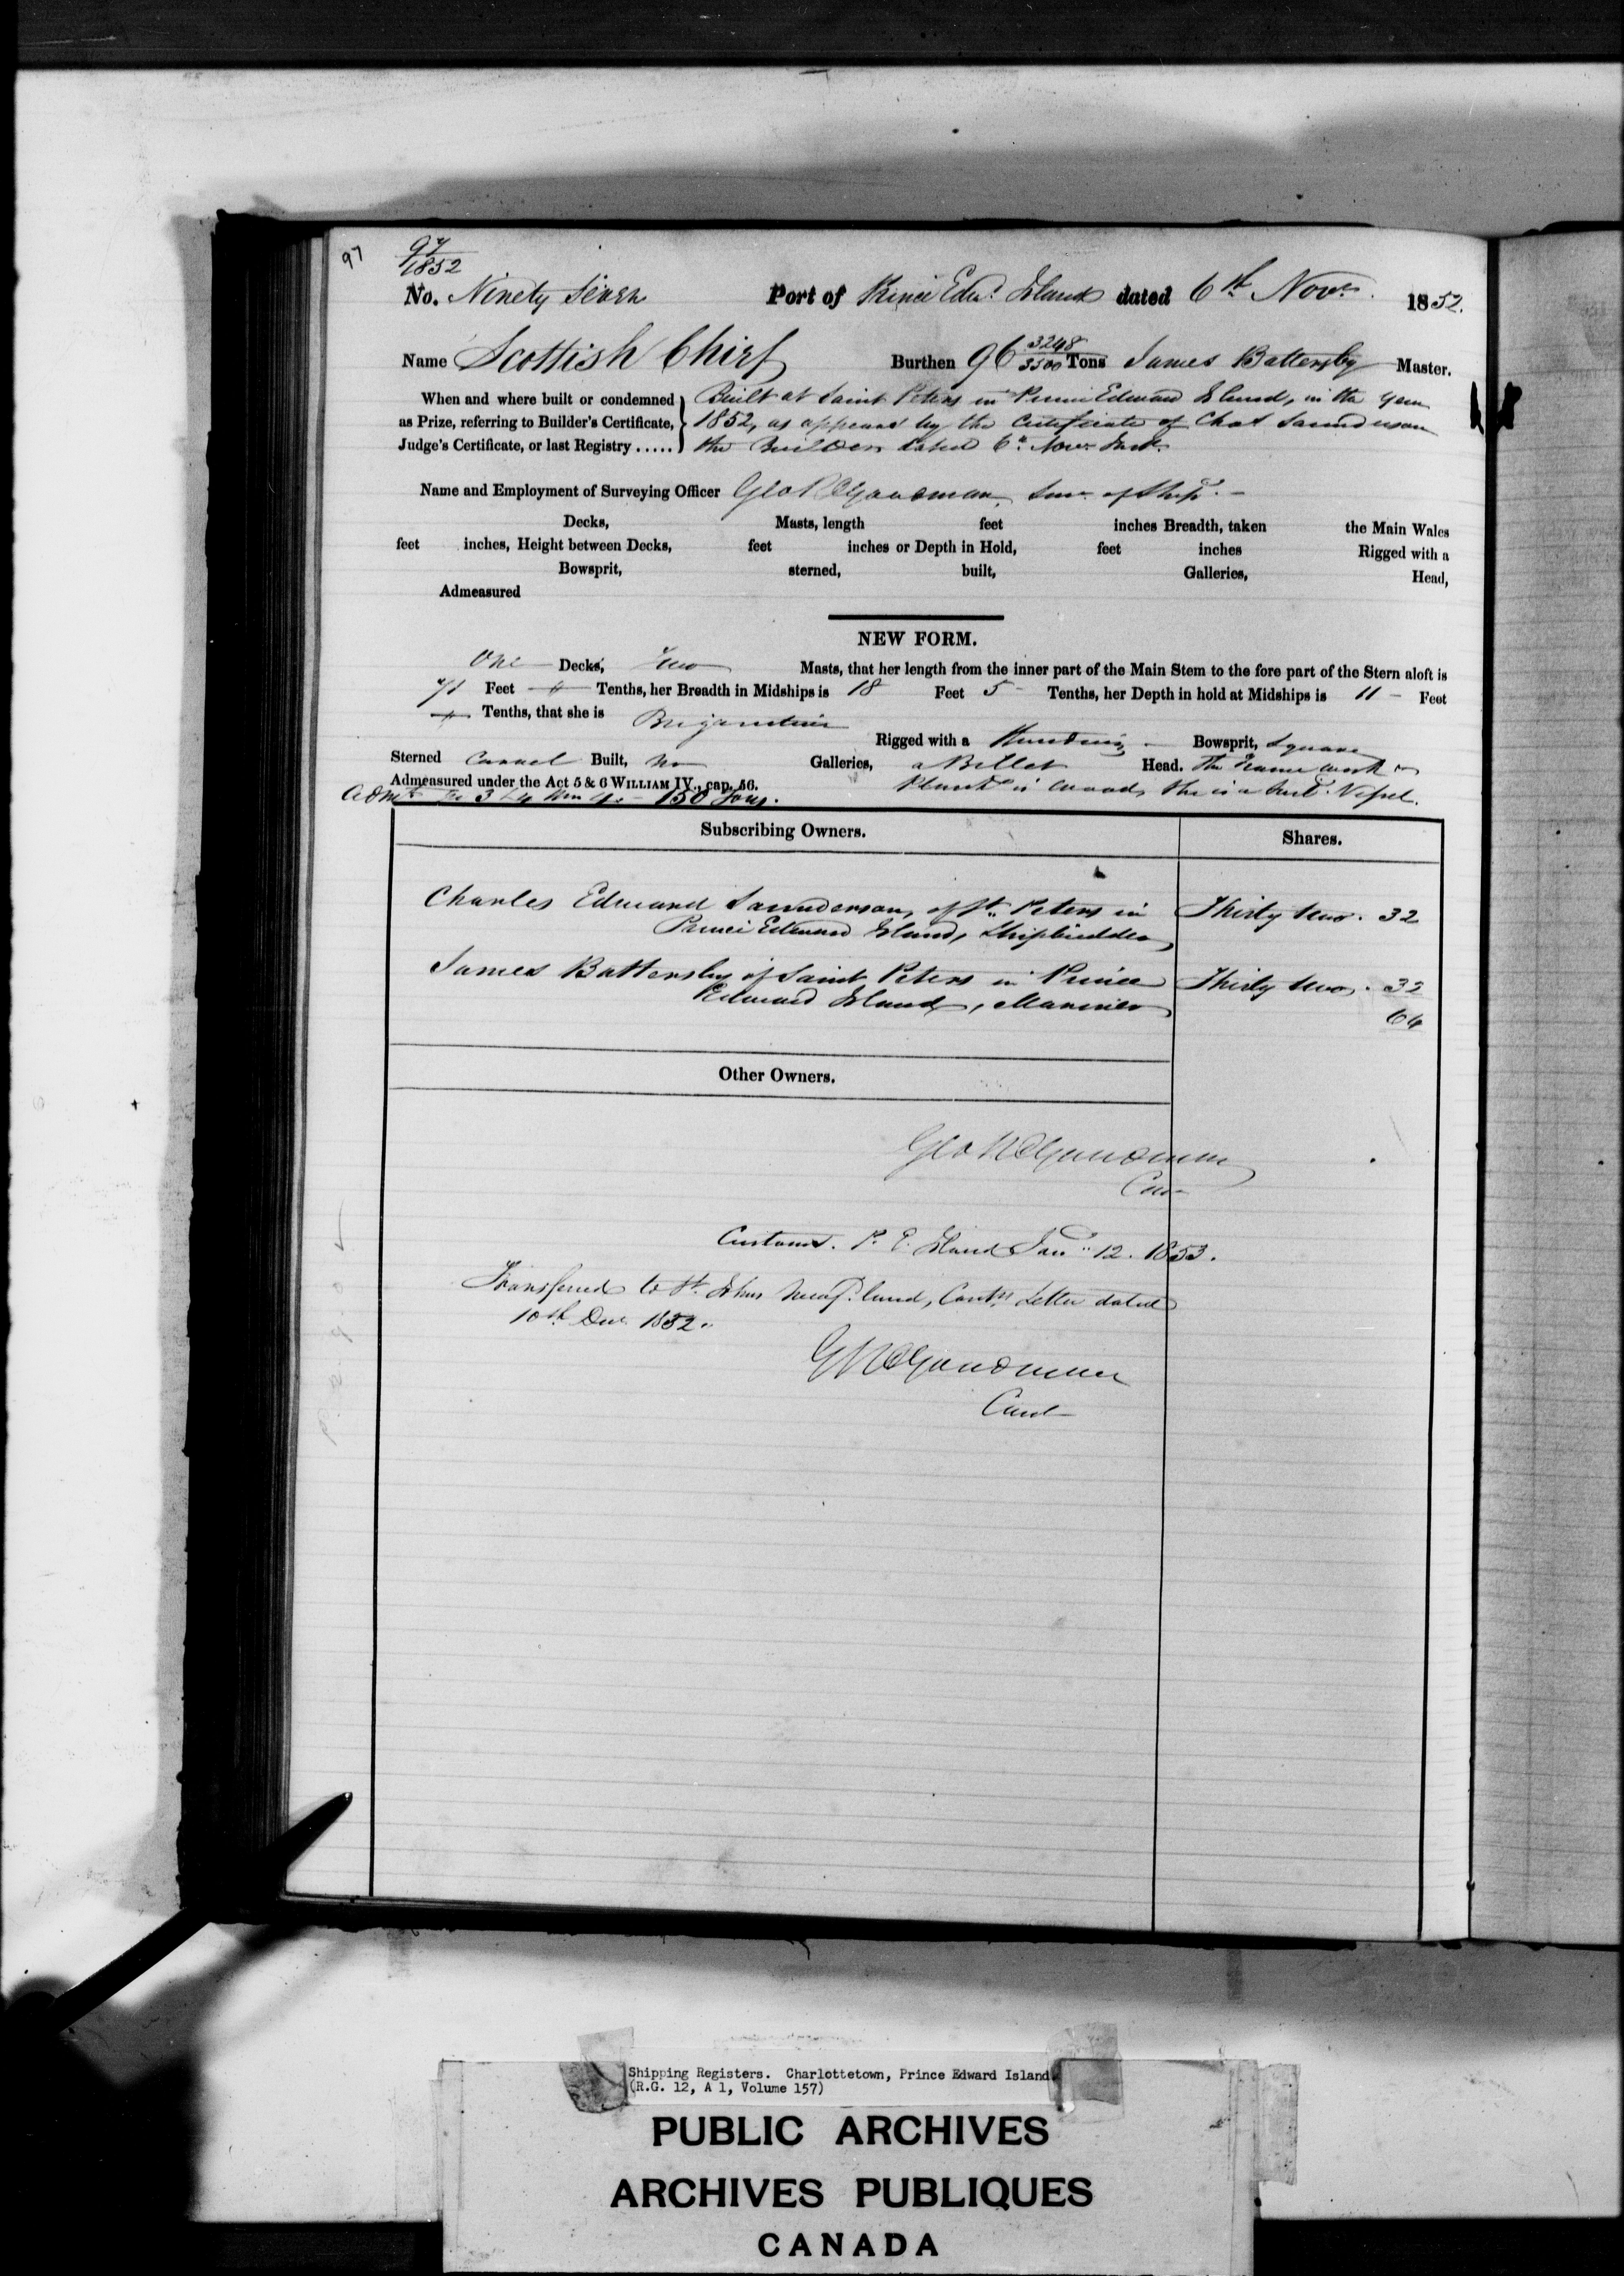 97
97
1852
No. Ninety Seven Port of Prince Edwd. Island dated 6th Novr. 1852.
Name Scottish Chief Burthen 96 3248/3500 Tons James Battersby Master.
When and where built or condemned Built at Saint Peters in Prince Edward Island, in the year
as Prize, referring to Builder's Certificate, 1852, as appears by the Certificate of Chas Saunderson
Judge's Certificate, or last Registry ..... the Builder dated 6th Novr. Inst.
Name and Employment of Surveying Officer Geo R Goodman, Surv. of Ship.
Decks, Masts, length feet inches Breadth, taken the Main Wales
feet inches, Height between Decks, feet inches or Depth in Hold, feet inches Rigged with a
Bowsprit, sterned, built, Galleries, Head,
Admeasured
NEW FORM.
One Decks, Two Masts, that her length from the inner part of the Main Stem to the fore part of the Stern aloft is
71 Feet 4 Tenths, her Breadth in Midships is 18 Feet 5 Tenths, her Depth in hold at Midships is 11 Feet
Tenths, that she is Brigantine
Rigged with a Standing Bowsprit, Square
Sterned Carvel Built, No Galleries, a Billet Head. The Frame work &
Admeasured under the Act 5 & 6 WILLIAM IV., cap. 56. Plank is wood, she is a Sail. Vessel.
150 Tons.
Subscribing Owners. Shares.
Charles Edward Saunderson, of St. Peters in Thirty two. 32
Prince Edward Island, Shipbuilder
James Battersby of Saint Peters in Prince Thirty two. 32
Edward Island, Mariner 64
Other Owners.
Geo R Goodman
Customs. P. E. Island Jany. 12. 1853.
Transferred to St. Johns Newfd.land, Letter dated
10th Decr. 1852.
G R Goodman
Shipping Registers. Charlottetown, Prince Edward Island
(R.G. 12, A 1, Volume 157)
PUBLIC ARCHIVES
ARCHIVES PUBLIQUES
CANADA